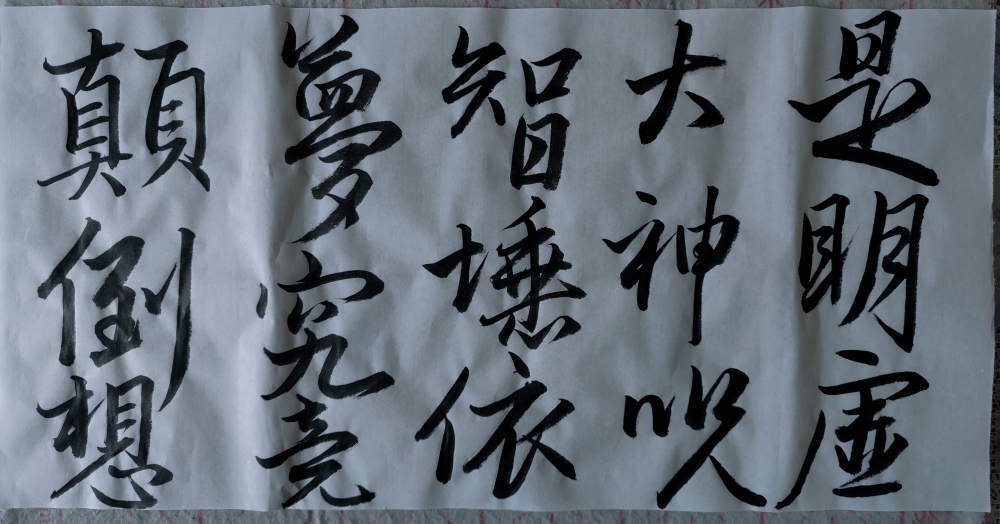 是明虚
大神呪
智埵依
夢究竟
顛倒想